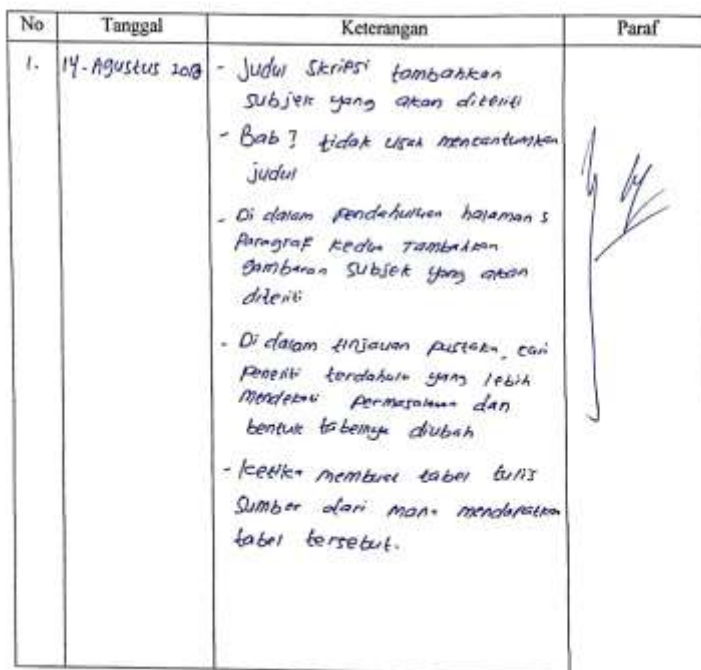 No Tanggal Keterangan Paraf
1. 14-Agustus - Judul Skripsi tambahkan
subjek yang akan diteliti
- Bab I tidak usah mencantumkan
judul
- Di dalam pendahuluan halaman 5
Paragraf kedua Tambahkan
gambaran Subjek yang akan
diteliti
- Di dalam tinjauan pustaka, cari
peneliti terdahulu yang lebih
mendekati permasalahan dan
bentuk tabelnya diubah
- Ketika membuat tabel tulis
Sumber dari mana mendapatkan
tabel tersebut.